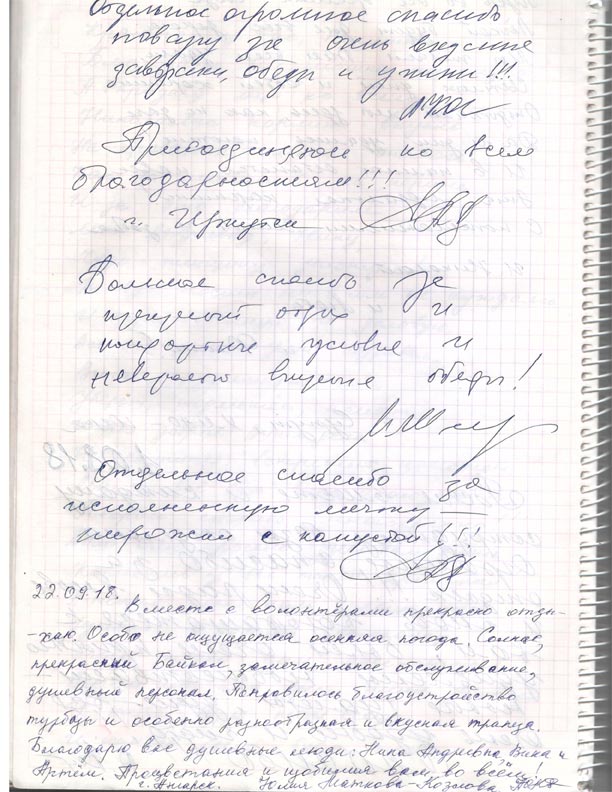 Отдельное огромное спасибо
повару за очень вкусные
завтраки, обеды и ужины!!!
Присоединяюсь ко всем
благодарностям!!!
г. Иркутск
Большое спасибо за
прекрасный отдых и
комфортные условия и
невероятно вкусные обеды!
Отдельное спасибо за
исполненную мечту —
пирожки с капустой!!!
22.09.18.
Вместе с волонтёрами прекрасно отды-
-хаю. Особо не ощущается осенняя погода. Солнце,
прекрасный Байкал, замечательное обслуживание,
душевный персонал. Понравилось благоустройство
турбазы и особенно разнообразная и вкусная трапеза.
Благодарю вас душевные люди: Нина Андреевна, Вика и
Артём. Процветания и изобилия вам во всём!
г. Ангарск. Юлия Маткова-Козлова